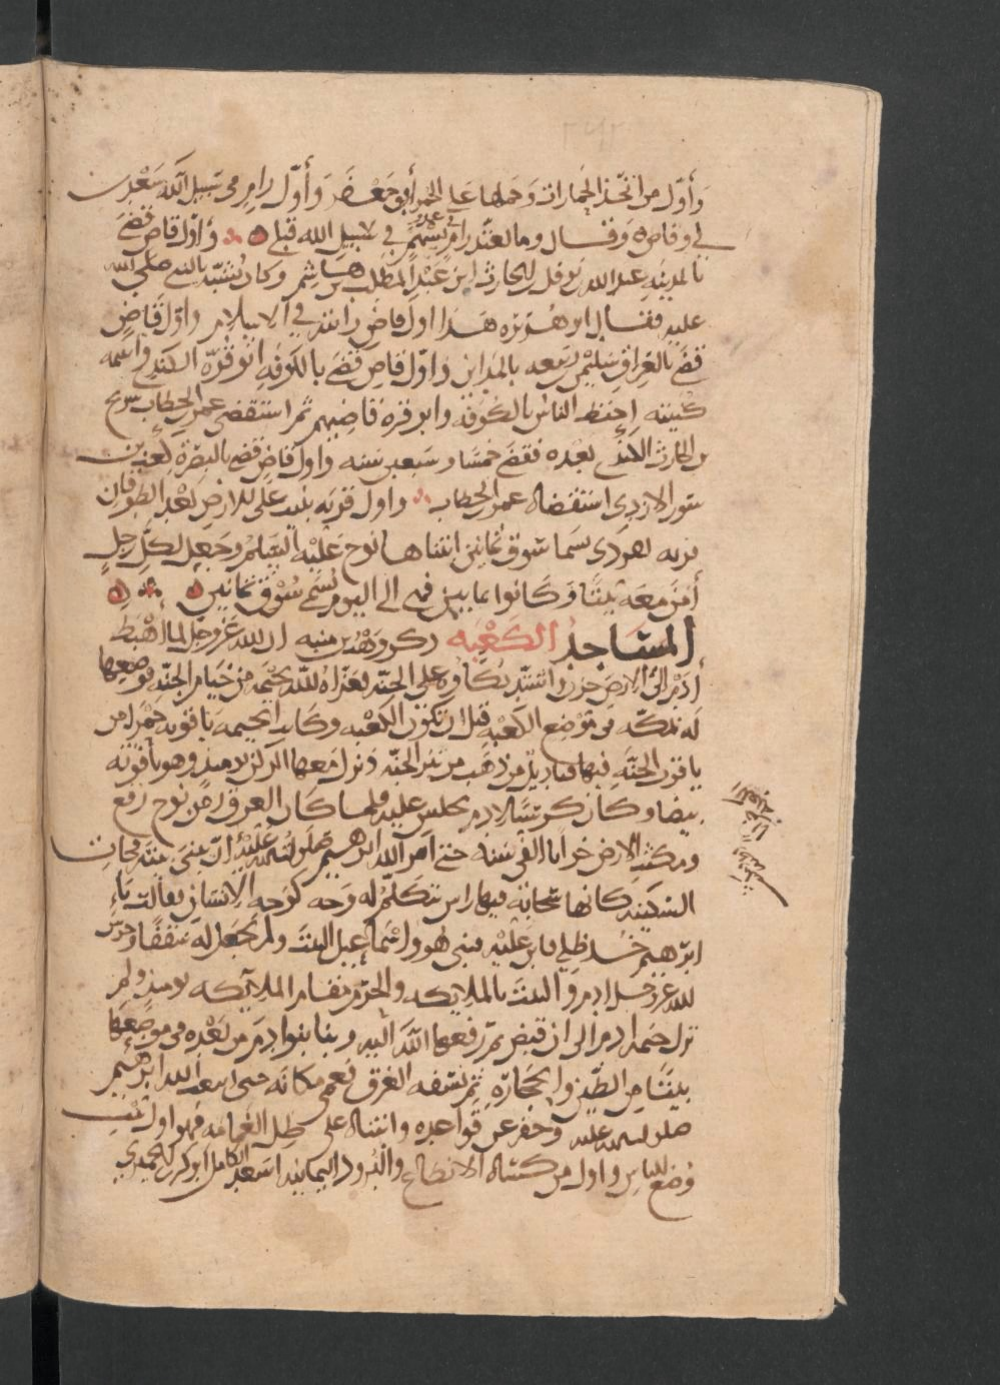 وأول من اتخذ الجمازات وحملها على الحمر أبو جعفر وأول رام رمى في سبيل الله سعد بن
أبي وقاص وقال وما يعتد رام في عدو بسهم في سبيل الله قبلي وأول قاض قضى
بالمدينة عبد الله بن نوفل بن الحارث ابن عبد المطلب بن هاشم وكان يشبه بالنبي صلى الله
عليه فقال ابو هريرة هذا اول قاض رايته في الاسلام واول قاض
قضى بالعراق سليمن بن ربيعه بالمداين واول قاض قضى بالكوفه ابو قرة الكندي واسمه
كنيته إختط الناس بالكوفة وابو قرة قاضيهم ثم استقضى عمر بن الخطاب شريح
بن الحارث الكندي بعده فقضى خمسا وسبعين سنه واول قاض قضى بالبصرة كعب بن
سور الازدي استقضاه عمر بن الخطاب واول قرية بنيت على الارض بعد الطوفان
قريه بقردى تسما سوق ثمانين ابتناها نوح عليه السلم وجعل لكل رجل
آمن معه بيتا وكانوا ثمانين فهي الى اليوم تسمى سوق ثمانين
المساجد الكعبه ذكر وهب بن منبه ان الله عز وجل لما اهبط
آدم الى الارض حزن واشتد بكاؤه على الجنة فعزاه الله بخيمة من خيام الجنة فوضعها
له بمكة في موضع الكعبة قبل ان تكون الكعبه وكانت الخيمه ياقوته حمرا من
ياقوت الجنة فيها قناديل من ذهب من تبر الجنة ونزل معها الركن يوميذ وهو ياقوتة
بيضا وكان كرسيا لادم يجلس عليه فلما كان الغرق زمن نوح رفع
ومكثت الارض خرابا الفي سنة حتى امر الله ابرهيم صلوات الله عليه ان يبني بيته فجات
السكينة كانها سحابة فيها راس تتكلم له وجه كوجه الانسان فقالت يا
ابرهيم خذ ظلي فابن عليه فبنى هو واسماعيل البيت ولم يجعل له سقفا وحرس
الله عز وجل ادم والبيت بالملايكه والحرم مقام الملايكه يوميذ ولم
تزل خيمة ادم الى ان قبض ثم رفعها الله اليه وبنا بنوا ادم من بعده في موضعها
بيتا من الطين والحجارة ثم نسفه الغرق فعمي مكانه حتى ابتعث الله ابرهيم
صلوات الله عليه وحفر عن قواعده وابتناه على ظل الغمامه فهو اول بيت
وضع للناس واول من كساه الانطاع والبرود اليمانيه اسعد الكامل ابو كرب الحميري